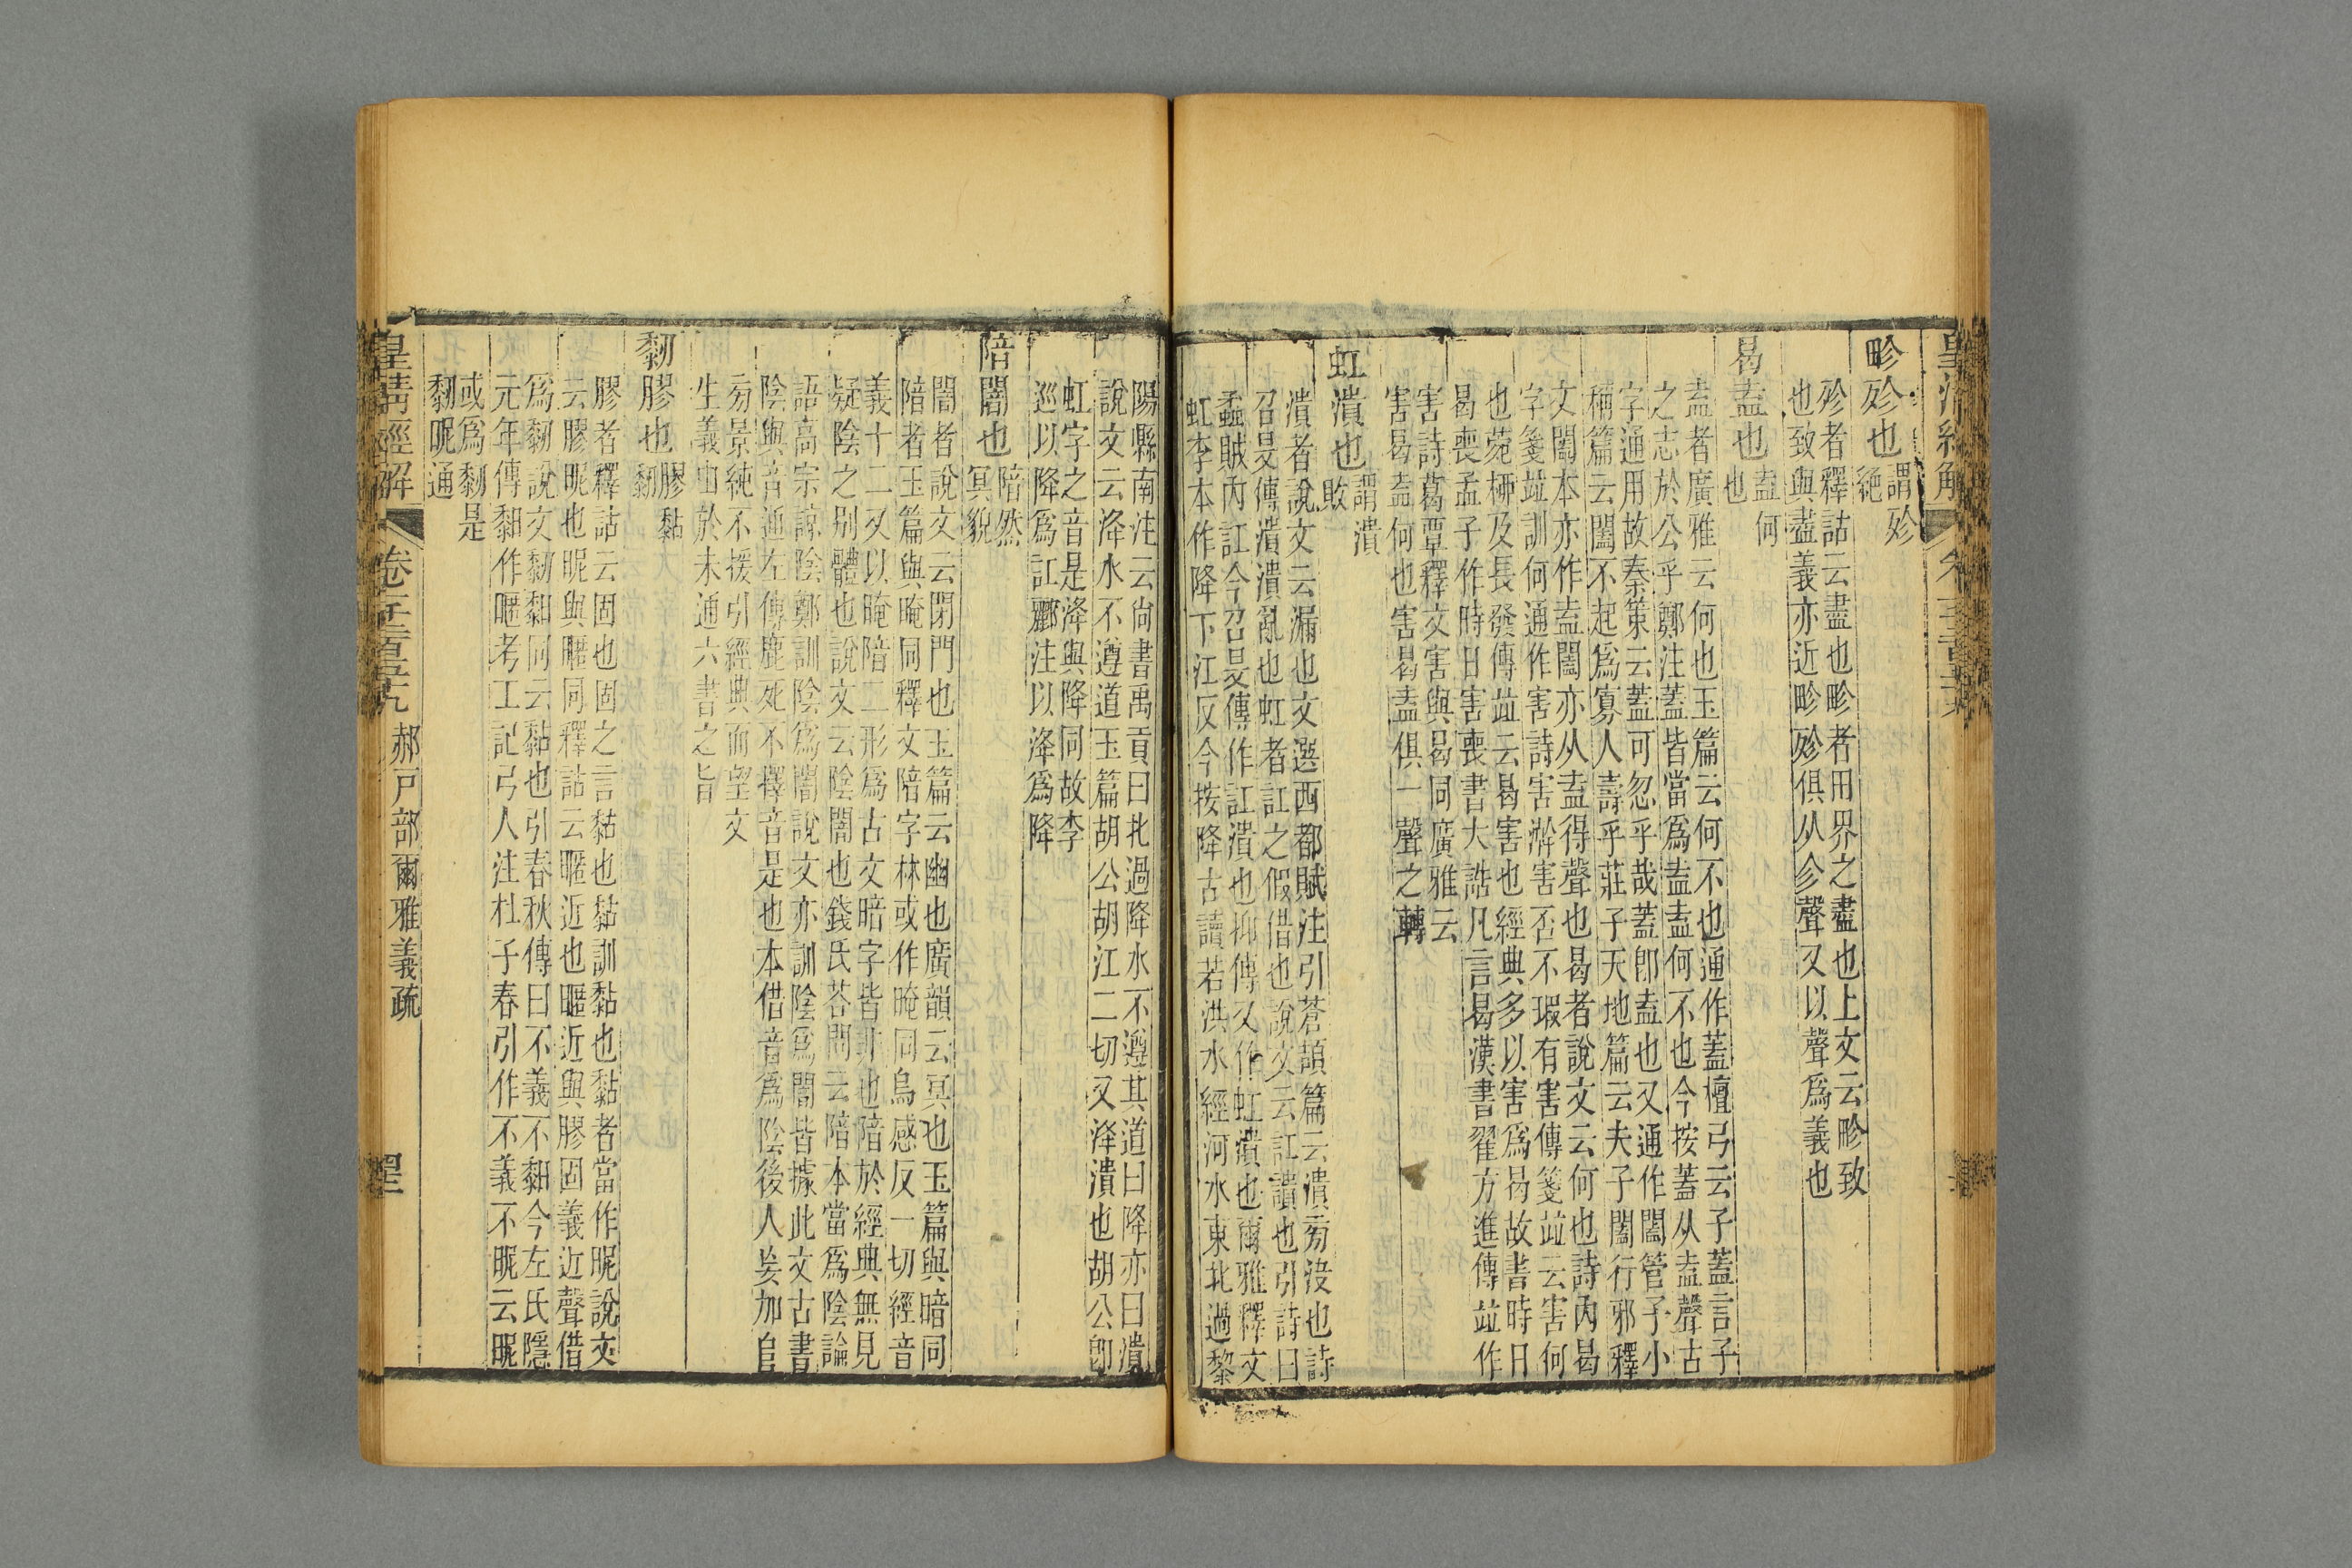 畛殄也
謂殄
絶
殄者釋詁云盡也畛者田界之盡也上文云畛致
也致與盡義亦近畛殄俱从㐱聲又以聲爲義也
曷盍也
盍何
也
盍者廣雅云何也玉篇云何不也通作蓋檀弓云子蓋言子
之志於公乎鄭注蓋皆當爲盍盍何不也今按蓋从盍聲古
字通用故秦策云蓋可忽乎哉蓋卽盍也又通作闔管子小
稱篇云闔不起爲寡人壽乎莊子天地篇云夫子闔行邪釋
文闔本亦作盍闔亦从盍得聲也曷者說文云何也詩內曷
字箋竝訓何通作害詩害澣害否不瑕有害傳箋竝云害何
也菀柳及長發傳竝云曷害也經典多以害爲曷故書時日
曷喪孟子作時日害喪書大誥凡言曷漢書翟方進傳竝作
害詩葛覃釋文害與曷同廣雅云
害曷盍何也害曷盍俱一聲之轉
虹潰也
謂潰
敗
潰者說文云漏也文選西都賦注引蒼頡篇云潰㫄没也詩
召旻傳潰潰亂也虹者訌之假借也說文云訌讃也引詩曰
蟊賊內訌今召旻傳作訌潰也抑傳又作虹潰也爾雅釋文
虹李本作降下江反今按降古讀若洪水經河水東北過黎
陽縣南注云尙書禹貢曰北過降水不遵其道曰降亦曰潰
說文云洚水不遵道玉篇胡公胡江二切又洚潰也胡公卽
虹字之音是洚與降同故李
巡以降爲訌酈注以洚爲降
陪闇也
陪然
冥貌
闇者說文云閉門也玉篇云幽也廣韻云冥也玉篇與暗同
陪者玉篇與晻同釋文陪字林或作晻同烏感反一切經音
義十二又以晻陪二形爲古文暗字皆非也陪於經典無見
疑陰之别體也說文云陰闇也錢氏荅問云陪本當爲陰論
語高宗諒陰鄭訓陰爲闇說文亦訓陰爲闇皆據此文古書
陰與音通左傳鹿死不擇音是也本借音爲陰後人妄加𨸏
㫄景純不援引經典而望文
生義由於未通六書之旨
䵑膠也
膠黏
䵑
膠者釋詁云固也固之言䵑也黏訓黏也黏者當作昵說文
云膠昵也昵與暱同釋詁云暱近也暱近與膠固義近聲借
爲䵑說文䵑黏同云黏也引春秋傳曰不義不䵑今左氏隱
元年傳䵑作暱考工記弓人注杜子春引作不義不昵云昵
或爲䵑䵑是
䵑昵通
皇清經解 卷千二百五十九 郝戸部爾雅義疏